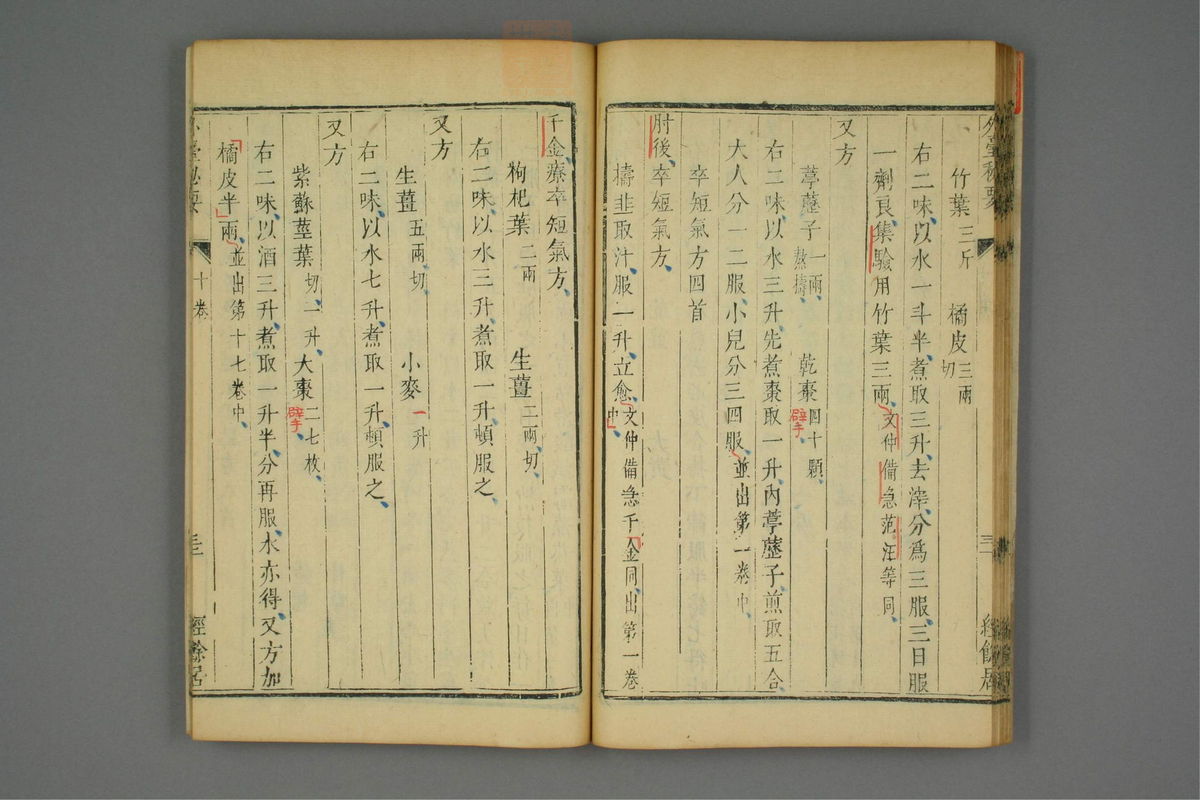 外臺秘要
竹葉三斤 橘皮三兩切
右二味以水一斗半煮取三升去滓分爲三服三日服
一劑良集驗用竹葉三兩文仲備急范汪等同
又方
葶藶子一兩熬擣 乾棗四十顆擘手
右二味以水三升先煮棗取一升內葶藶子煎取五合
大人分一二服小兒分三四服並出第一卷中
卒短氣方四首
肘後卒短氣方
擣韭取汁服一升立愈文仲備急千金同出第一卷中
經餘居
千金療卒短氣方
枸杞葉二兩 生薑二兩切
右二味以水三升煮取一升頓服之
又方
生薑五兩切 小麥一升
右二味以水七升煮取一升頓服之
又方
紫蘇莖葉切二升 大棗二七枚擘手
右二味以酒三升煮取一升半分再服水亦得又方加
橘皮半兩並出第十七卷中
外臺秘要 十卷 三二 經餘居